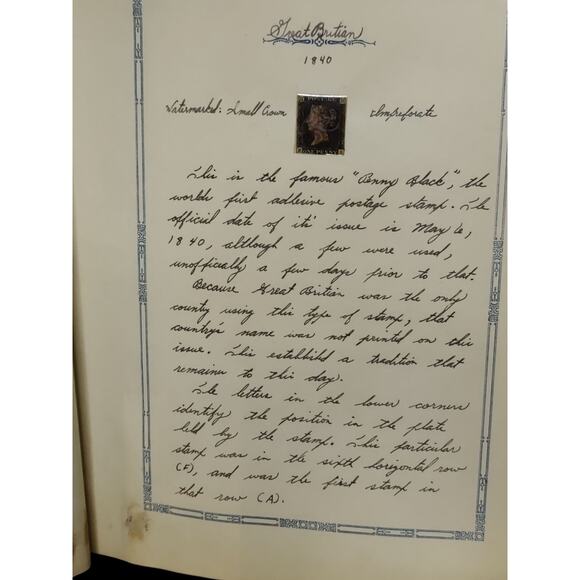 Great Britian
1840
Watermarked: Small Crown
Imperforate
POSTAGE
ONE PENNY
This is the famous "Penny Black", the
worlds first adhesive postage stamp. The
official date of its' issue is May 6,
1840, although a few were used,
unofficially a few days prior to that.
Because Great Britian was the only
country using this type of stamp, that
country's name was not printed on this
issue. This established a tradition that
remains to this day.
The letters in the lower corners
identify the position in the plate
held by the stamp. This particular
stamp was in the sixth horizontal row
(F), and was the first stamp in
that row (A).